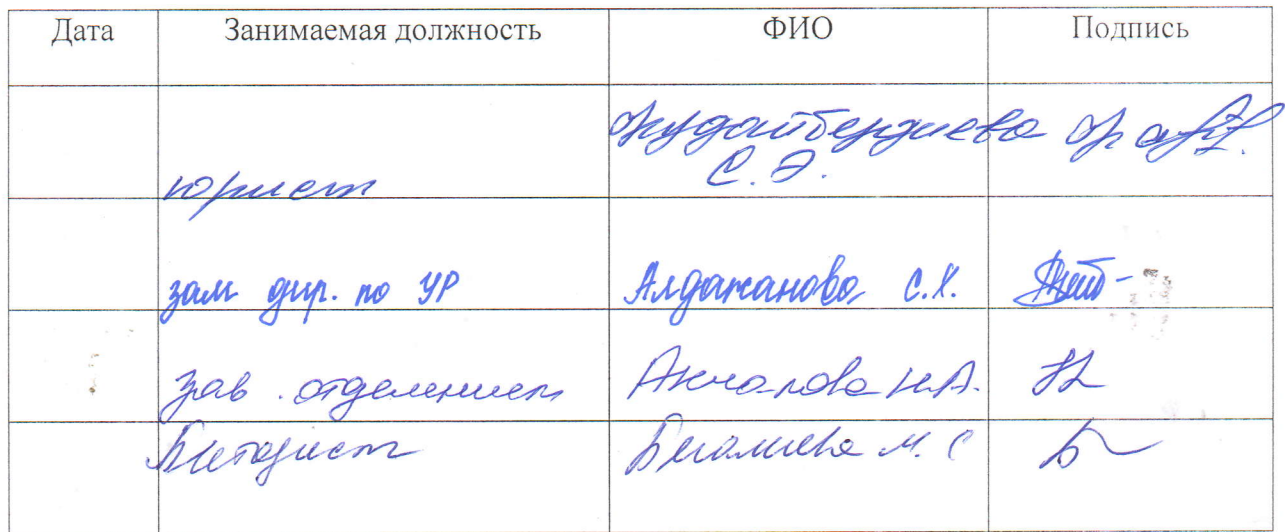 Дата Занимаемая должность ФИО Подпись
юрист Худайбердиева
С. Э.
зам дир. по УР Алдажанова С.Х.
зав. отделением Н.А.
Методист М. С